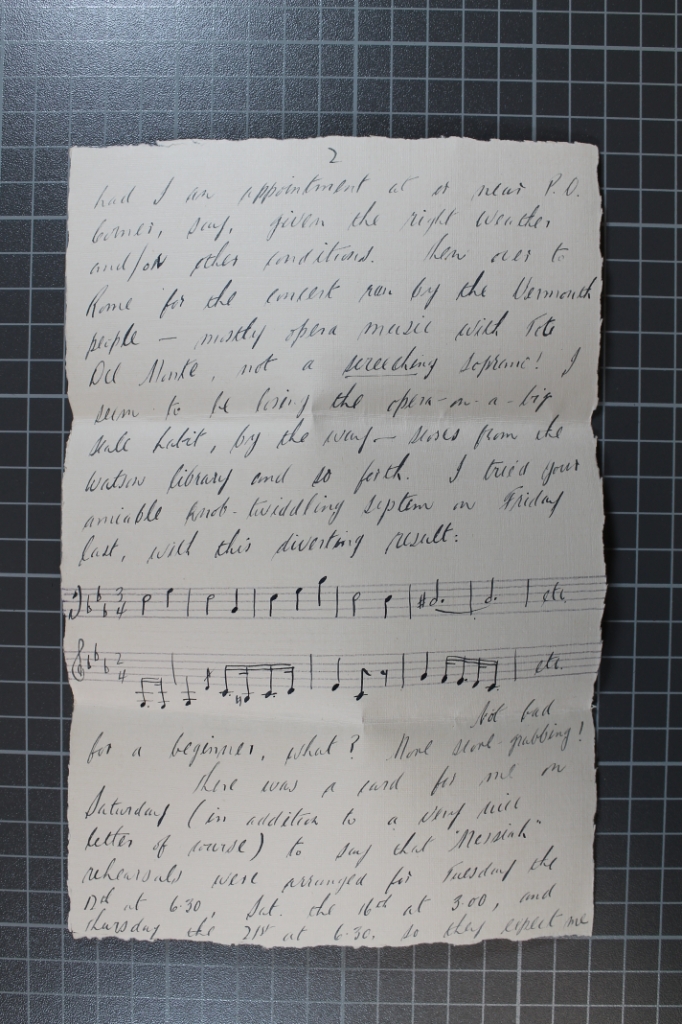 2
had I an appointment at or near P.O.
Corner, say, given the right weather
and/or other conditions. Then over to
Rome for the concert ran by the Vermouth
people — mostly opera music with Toti
Del Monte, not a screeching soprano! I
seem to be losing the opera-on-a-big
scale habit, by the way — scores from the
Watson library and so forth. I tried your
amiable knob-twiddling system on Friday
last, with this diverting result:
3 4 etc.
2 4 etc.
Not bad
for a beginner, what? More score-grabbing!
There was a card for me on
Saturday (in addition to a very nice
letter of course) to say that "Messiah"
rehearsals were arranged for Tuesday the
12d at 6.30, Sat. the 16d at 3.00, and
Thursday the 21st at 6.30. so they expect me